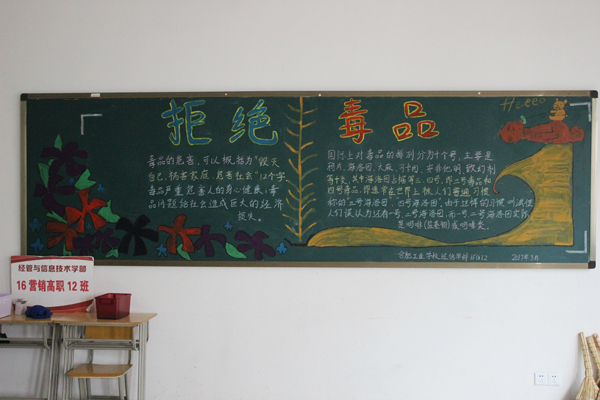 拒绝毒品
Hello
毒品的危害,可以概括为“毁灭
自己,祸害家庭,危害社会”12个字
毒品严重危害人的身心健康;毒
品问题给社会造成巨大的经济
损失。
国际上对毒品的排列分为十个号,主要是
鸦片、海洛因、大麻、可卡因、安非他明、致幻剂
等十类,其中海洛因占据第三、四号,即三号毒品和
四号毒品,作在常在世界上被人们普遍习惯
称的“三号海洛因”、“四号海洛因”。由于这样的习惯叫法使
人们误认为还有一号、二号海洛因,而一号、二号海洛因实际
是吗啡(盐基铜)或吗啡类。
合肥工业学校经信学部16YX12
2017年3月
经管与信息技术学部
16 营销高职 12 班